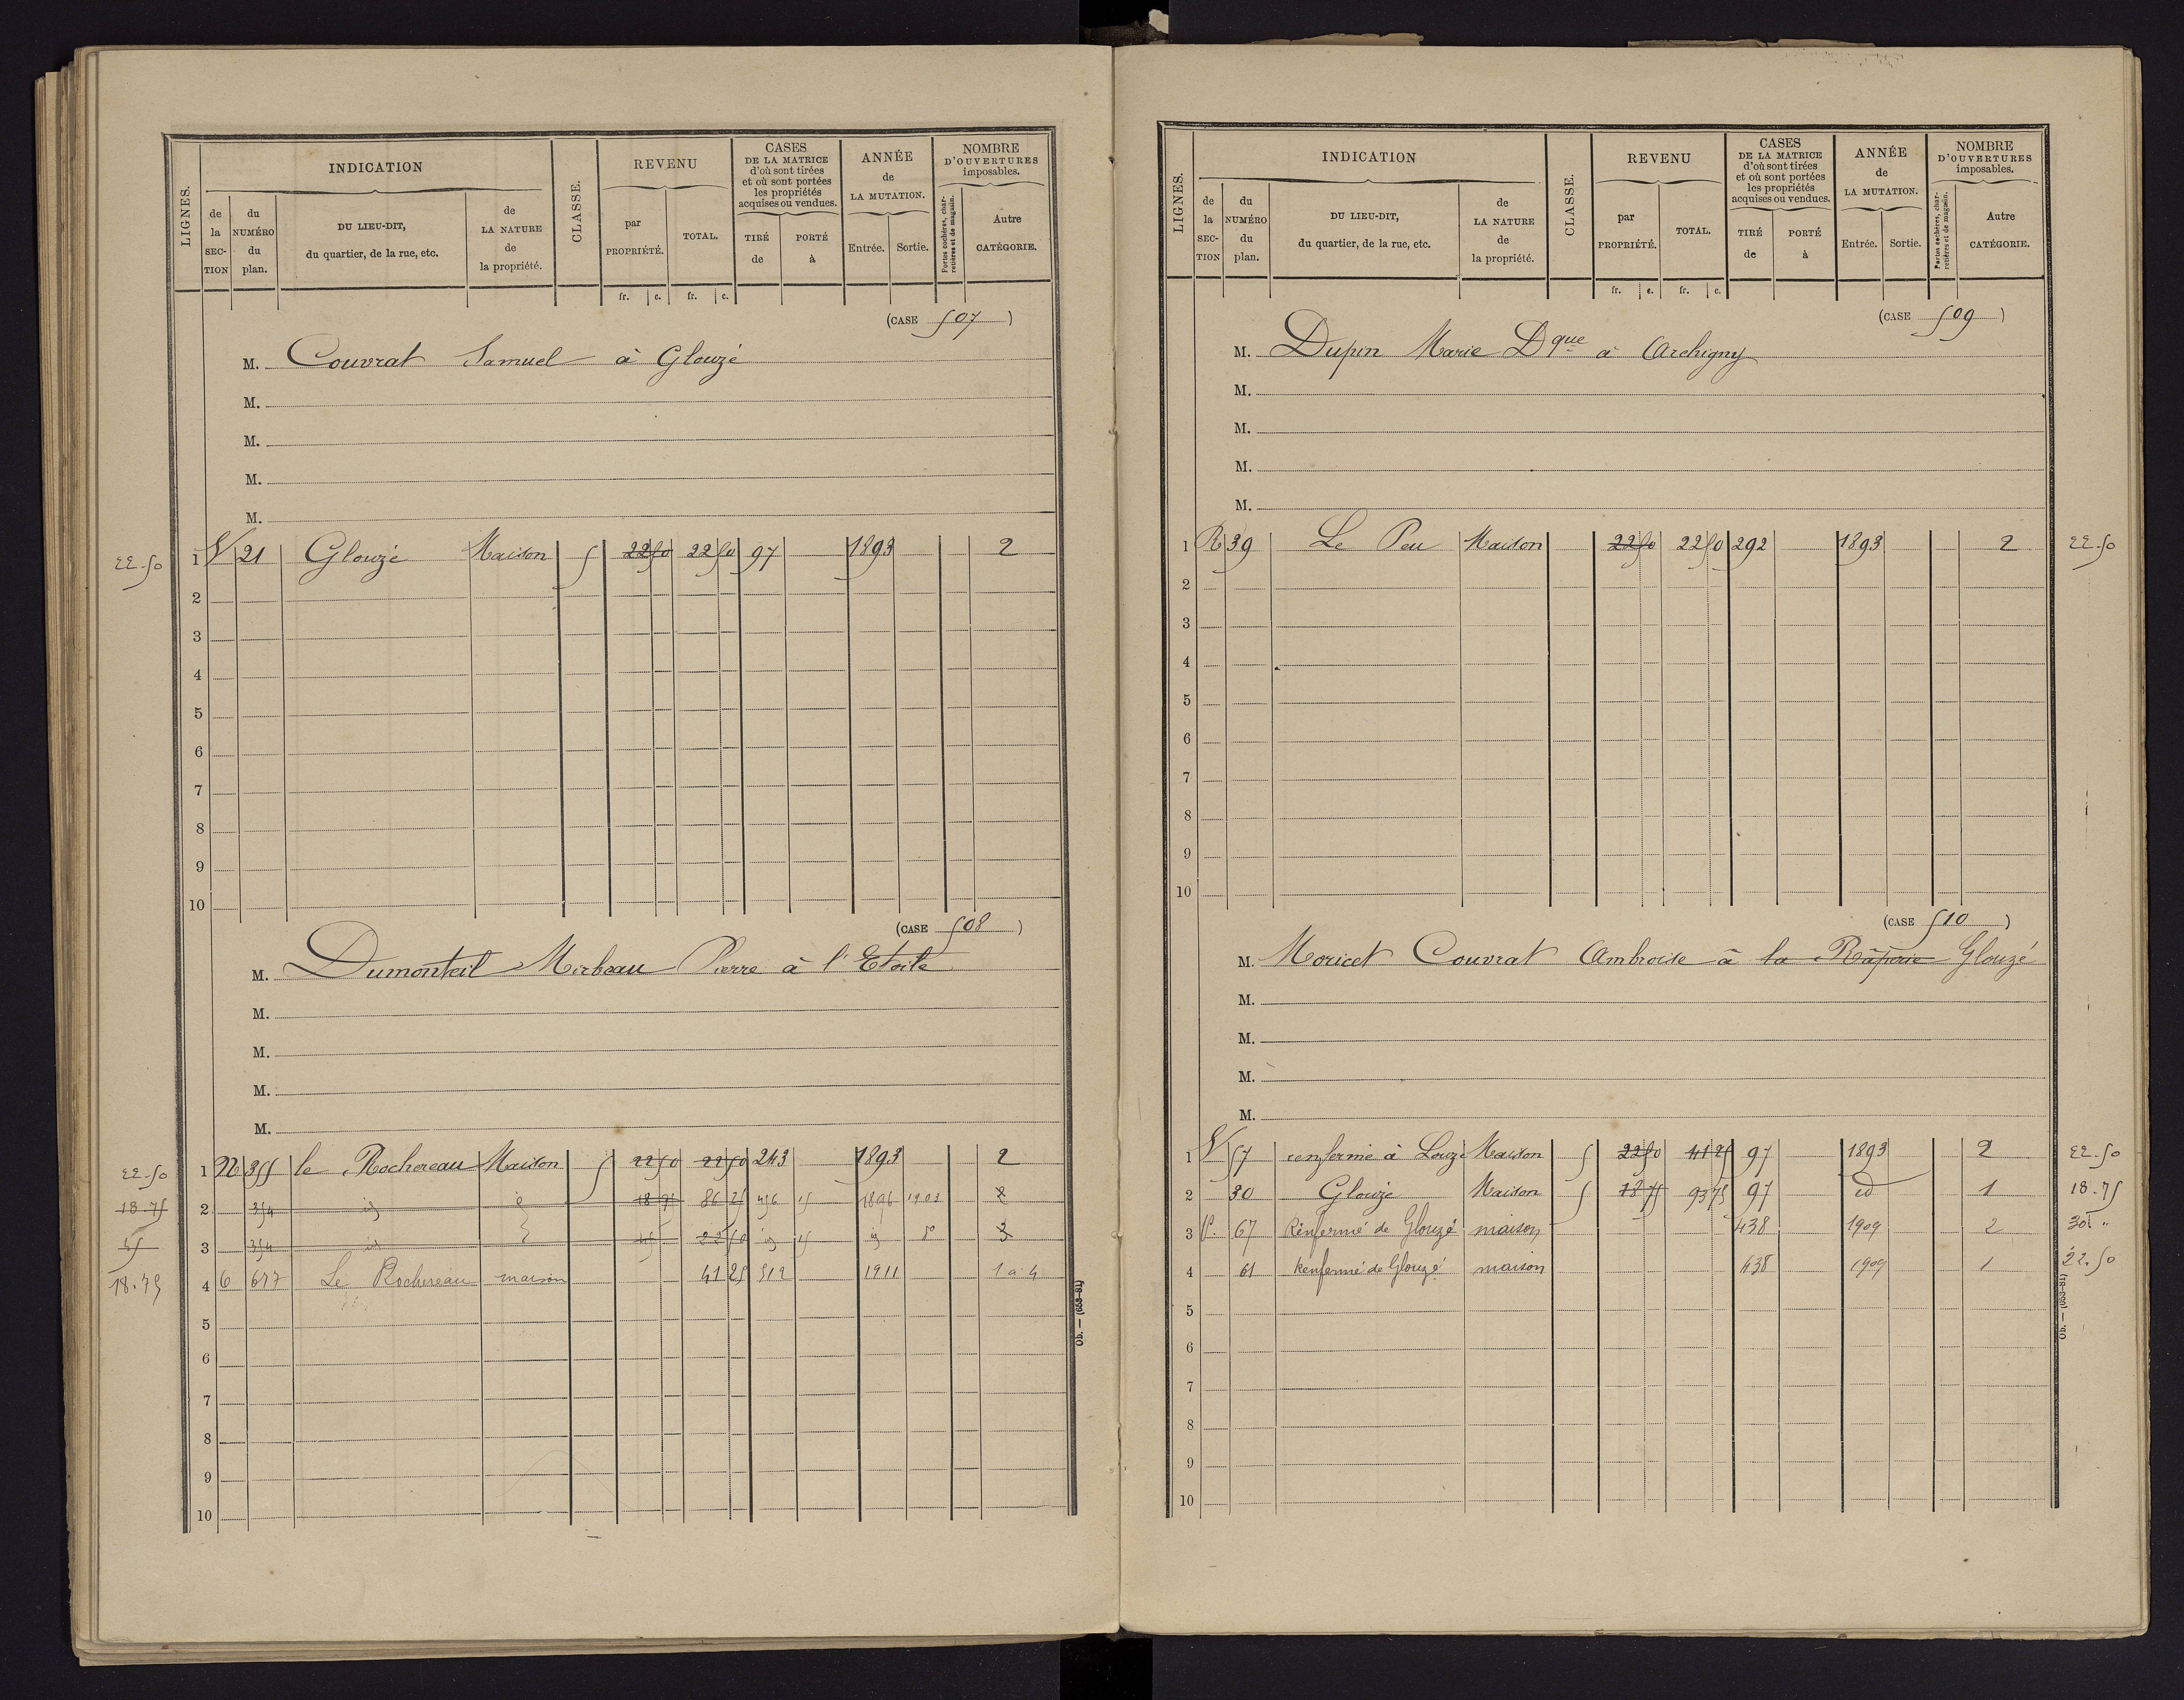 LIGNES.
INDICATION
CLASSE.
REVENU
CASES
DE LA MATRICE
d'où sont tirées
et où sont portées
les propriétés
acquises ou vendues.
ANNÉE
de
LA MUTATION.
NOMBRE
D'OUVERTURES
imposables.
de la SECTION
du NUMÉRO du plan.
DU LIEU-DIT,
du quartier, de la rue, etc.
de LA NATURE de la propriété.
par PROPRIÉTÉ.
TOTAL.
TIRÉ de
PORTÉ à
Entrée.
Sortie.
Portes cochères, charretières et de magasin.
Autre CATÉGORIE.
fr. c. fr. c.
(CASE 507)
M. Couvrat Samuel à Glouzé
M.
M.
M.
M.
22.50 1 V 21 Glouzé Maison 5 22 50 22 50 97 1893 2
2
3
4
5
6
7
8
9
10
(CASE 508)
M. Dumonteil Mirbeau Pierre à l'Etoile
M.
M.
M.
M.
22.50 1 N 355 le Rochereau Maison 5 22 50 22 50 243 1893 2
18.75 2 354 id 18 75 86 25 456 1896 1903 2
45 3 354 id 45 22 50 id id do 3
18.75 4 6 677 Le Rochereau maison 41 25 512 1911 1 à 4
5
6
7
8
9
10
Ob. — (653-81)
LIGNES.
INDICATION
CLASSE.
REVENU
CASES
DE LA MATRICE
d'où sont tirées
et où sont portées
les propriétés
acquises ou vendues.
ANNÉE
de
LA MUTATION.
NOMBRE
D'OUVERTURES
imposables.
de la SECTION
du NUMÉRO du plan.
DU LIEU-DIT,
du quartier, de la rue, etc.
de LA NATURE de la propriété.
par PROPRIÉTÉ.
TOTAL.
TIRÉ de
PORTÉ à
Entrée.
Sortie.
Portes cochères, charretières et de magasin.
Autre CATÉGORIE.
fr. c. fr. c.
(CASE 509)
M. Dupin Marie Dque à Archigny
M.
M.
M.
M.
1 R 39 Le Peu Maison 22 50 22 50 292 1893 2 22.50
2
3
4
5
6
7
8
9
10
(CASE 510)
M. Moricet Couvrat Ambroise à la Râperie Glouzé
M.
M.
M.
M.
1 V 57 renfermé à Louzé Maison 5 22 50 41 25 97 1893 2 22.50
2 30 Glouzé Maison 5 18 75 93 75 97 id 1 18.75
3 P. 67 Renfermé de Glouzé maison 438 1909 2 30. "
4 61 Renfermé de Glouzé maison 438 1909 1 22.50
5
6
7
8
9
10
Ob. — (653-81)